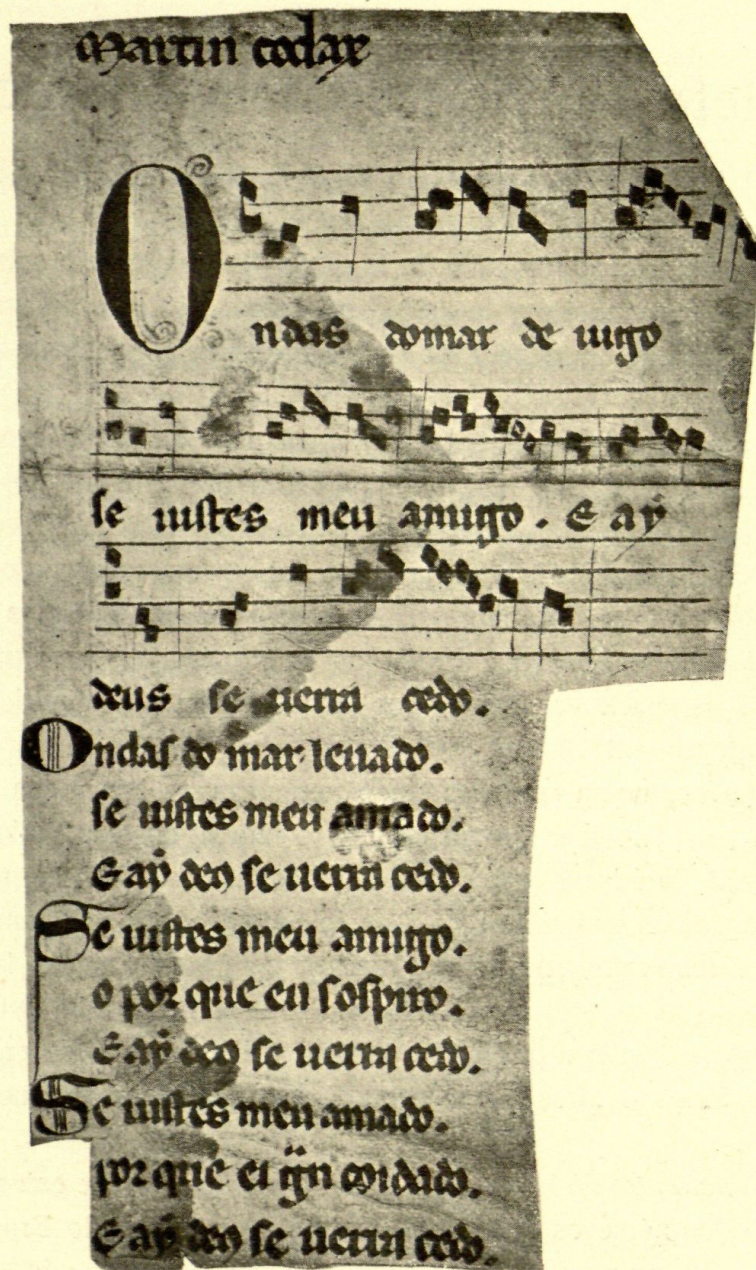 Martin codax
Ondas do mar de uigo
se uistes meu amigo. E ay
deus se uerra cedo.
Ondas do mar leuado.
se uistes meu amado.
E ay deo se uerra cedo.
Se uistes meu amigo.
o por que eu sospiro.
E ay deo se uerra cedo.
Se uistes meu amado.
por que ei gn coidado.
E ay deo se uerra cedo.